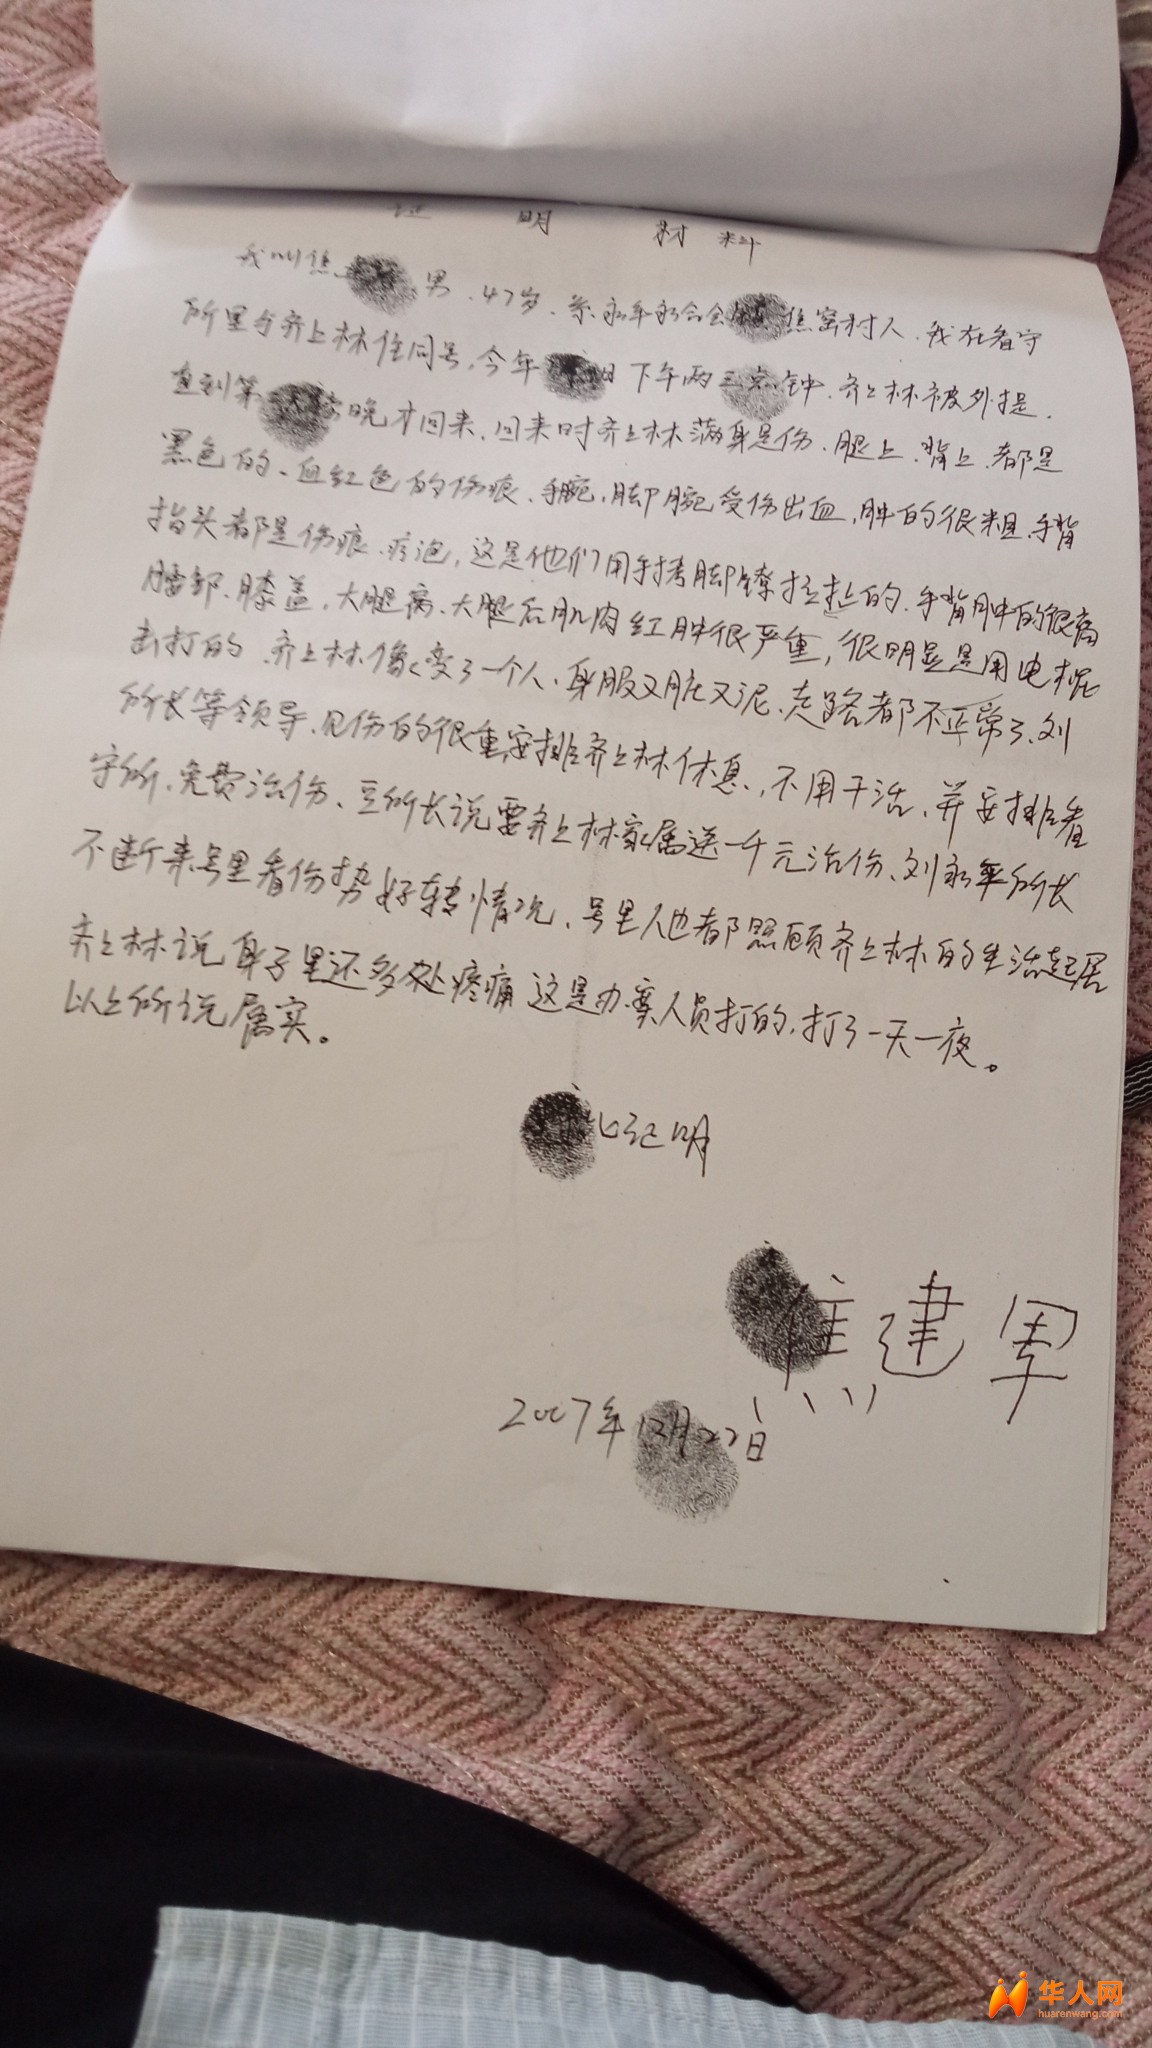 证 明 材 料
我叫焦 男、47岁、系永年永合会 焦窑村人、我在看守
所里与齐上林住同号,今年 日下午两三点钟、齐上林被外提、
直到第 晚才回来、回来时齐上林满身是伤、腿上、背上、都是
黑色的、血红色的伤痕、手腕,脚腕受伤出血,肿的很粗、手背
指头都是伤痕、疗泡,这是他们用手拷脚镣拉扯的、手背肿的很高
腰部、膝盖,大腿离、大腿后肌肉红肿很严重,很明显是用电棍
击打的、齐上林像变了一个人、身服又脏又泥、走路都不正常了、刘
所长等领导、见伤的很重,安排齐上林休息,不用干活、并安排看
守所、免费治伤、豆所长说要齐上林家属送一千元治伤、刘永平所长
不断来号里看伤势好转情况、号里人也都照顾齐上林的生活起居
齐上林说身子里还多处疼痛 这是办案人员打的,打了一天一夜。
以上所说属实。
此证明
焦建军
2007年12月22日
华人网
huarenwang.com